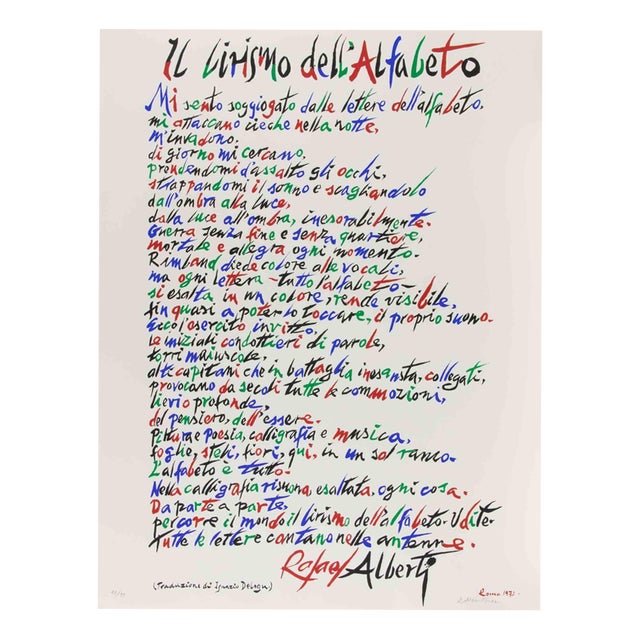 Il lirismo dell'Alfabeto
Mi sento soggiogato dalle lettere dell'alfabeto.
mi attaccano cieche nella notte,
m'invadono.
di giorno mi cercano,
prendendomi d'assalto gli occhi,
strappandomi il sonno e scagliandolo
dall'ombra alla luce,
dalla luce all'ombra, inesorabilmente.
Guerra senza fine e senza quartiere,
mortale e allegra ogni momento.
Rimbaud diede colore alle vocali,
ma ogni lettera - tutto l'alfabeto -
si esalta in un colore, rende visibile,
fin quasi a poterlo toccare, il proprio suono.
Ecco l'esercito invitto,
le iniziali condottieri di parole,
torri maiuscole,
alti capitani che in battaglia inesausta, collegati,
provocano da secoli tutte le commozioni,
lievi o profonde,
del pensiero, dell'essere.
Pittura e poesia, calligrafia e musica,
foglie, steli, fiori, qui, in un sol ramo.
L'alfabeto è tutto.
Nella calligrafia risuona, esaltata, ogni cosa.
Da parte a parte,
percorre il mondo il lirismo dell'alfabeto. Udite.
Tutte le lettere cantano nelle antenne.
Rafael Alberti
(Traduzione di Ignazio Delogu)
Roma 1972.